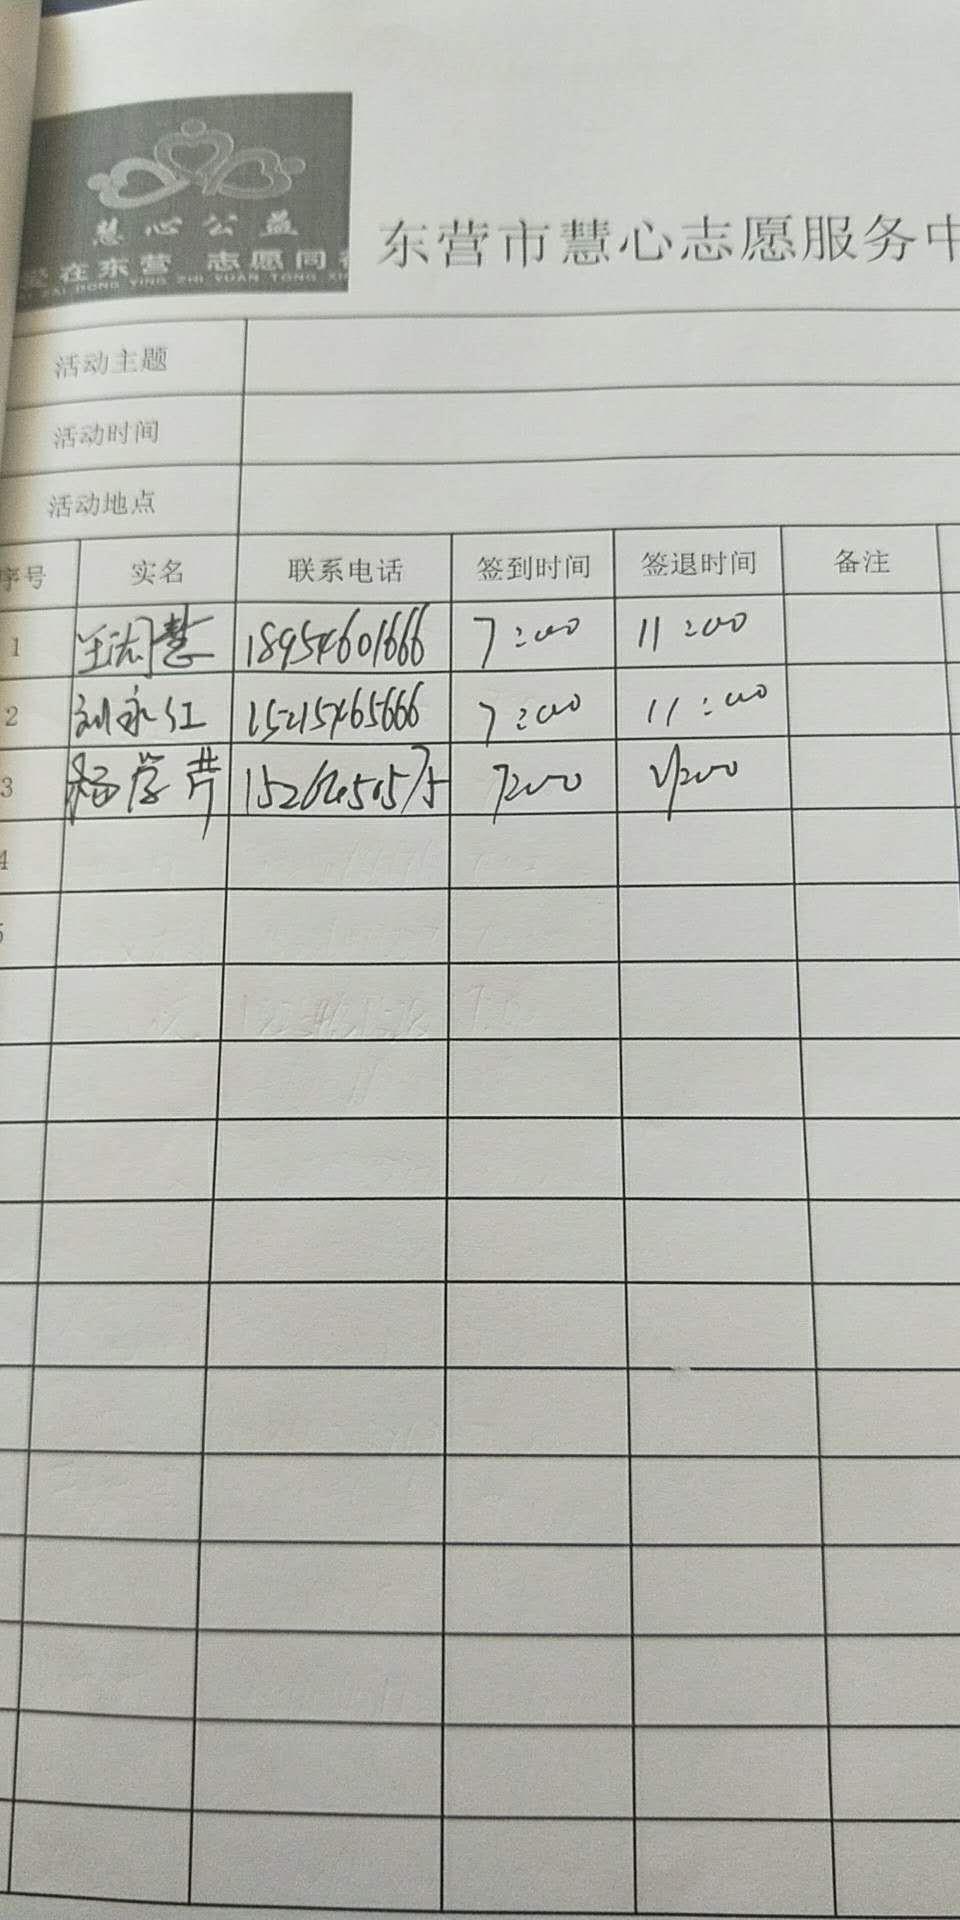 慧心公益
爱在东营 志愿同行
AI ZAI DONG YING ZHI YUAN TONG XI
东营市慧心志愿服务中
活动主题
活动时间
活动地点
序号 实名 联系电话 签到时间 签退时间 备注
1 慧 18954601666 7:00 11:00
2 刘永红 15215465666 7:00 11:00
3 杨学芹 7:00 11:00
4
5